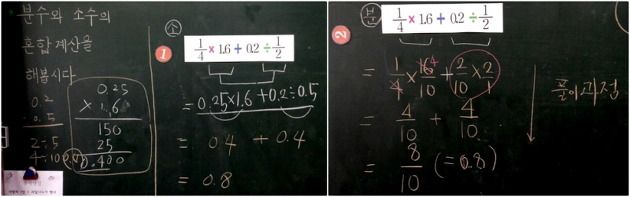 분수와 소수의
혼합 계산을
해봅시다
0.2
0.5
2÷5
0.25
× 1.6
150
25
0.400
소
1
1/4 × 1.6 + 0.2 ÷ 1/2
= 0.25×1.6 + 0.2÷0.5
= 0.4 + 0.4
= 0.8
분
2
1/4 × 1.6 + 0.2 ÷ 1/2
= 1/4 × 16/10 + 2/10 × 2/1
4
1
= 4/10 + 4/10
= 8/10 (=0.8)
풀이과정